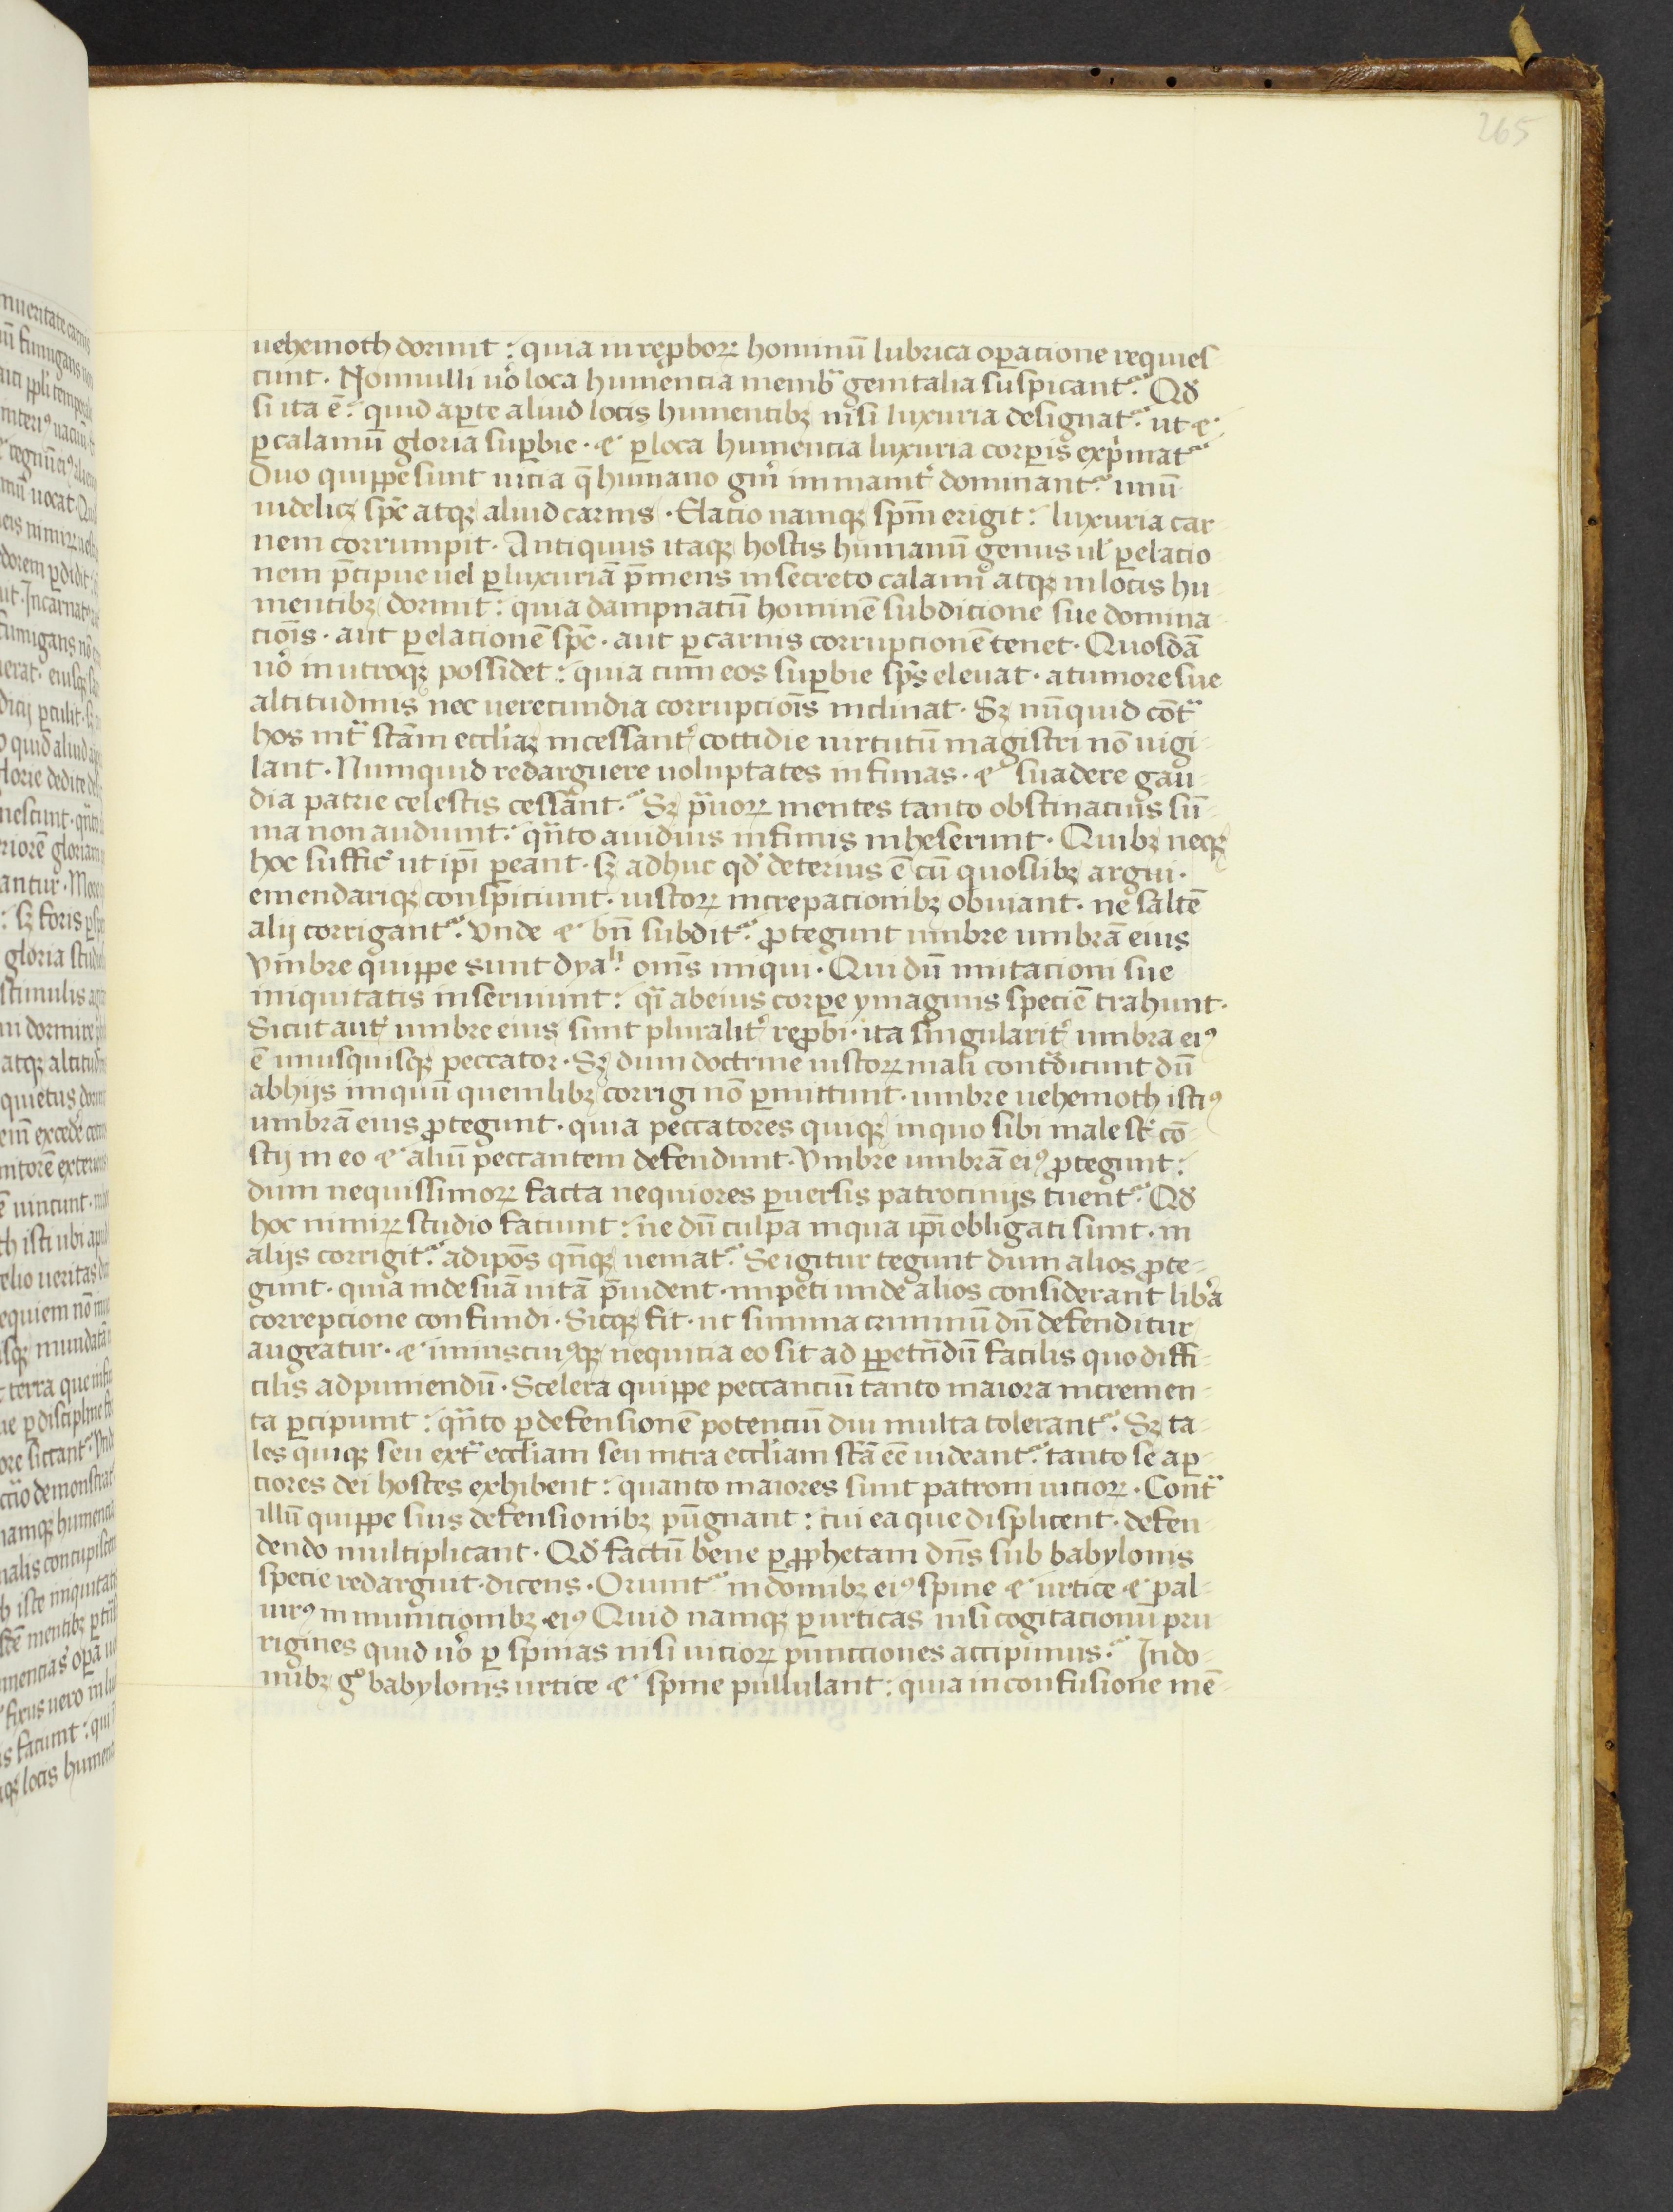 265
uehemoth dormit: quia in reꝓboꝝ hominū lubrica oꝑacione requies
cunt. Nonnulli ůo loca humencia membᵃ genitalia suspicant᷑. Qd̛
si ita ē: quid aꝑte aliud locis humentibꝫ nisi luxuria designat᷑. ut ⁊
ꝑ calamū gloria suꝑbie. ⁊ ꝑ loca humencia luxuria corꝑis exp̛mat᷑
Duo quippe sunt uicia q̄ humano gn̄i inmanit̛ dominant᷑. unū
uidelicꝫ sp̄c atqꝫ aliud carnis. Elacio namqꝫ sp̄m erigit: luxuria car
nem corrumpit. Antiquus itaqꝫ hostis humanū genus ul̛ ꝑ elacio
nem p̄cipue uel ꝑ luxuriā p̄mens in secreto calami atqꝫ in locis hu
mentibꝫ dormit: quia dampnatū hominē subdicione sue domina
cioīs. aut ꝑ elacionē sp̄c. aut ꝑ carnis corrupcionē tenet. Quosdā
ůo in utroqꝫ possidet: quia cum eos suꝑbie sp̄s eleuat. a tumore sue
altitudinis nec uerecundia corrupcioīs inclinat. Sꝫ nūnquid cōtᵃ
hos intᵃ sc̄am eccl̄iaꝫ incessant̛ cottidie uirtutū magistri nō uigi
lant. Numquid redarguere uoluptates infimas. ⁊ suadere gau
dia patrie celestis cessant. Sꝫ pᵃuoꝝ mentes tanto obstinacius sū
ma non audiunt: qᵃnto auidius infimis inheserunt. Quibꝫ neqꝫ
hoc suffic̛ ut ip̄i ꝑeant. sꝫ adhuc qd̛ deterius ē cū quoslibꝫ argui.
emendariqꝫ conspiciunt. iustoꝝ increpacionibꝫ obuiant. ne saltē
alij corrigant᷑. Vnde ⁊ bn̄ subdit᷑. ꝓtegunt umbre umbrā eius
Vmbre quippe sunt dyaˡⁱ om̄s iniqui. Qui dū imitacioni sue
iniquitatis inseruiunt: qī ab eius corꝑe ymaginis speciē trahunt.
Sicut aut̛ umbre eius sunt pluralit̛ reꝓbi. ita singularit̛ umbra eiꝰ
ē unusquisqꝫ peccator. Sꝫ dum doctrine iustoꝝ mali contᵃdicunt dū
ab hijs iniquū quemlibꝫ corrigi nō ꝑmittunt. umbre uehemoth istiꝰ
umbrā eius ꝓtegunt. quia peccatores quiqꝫ in quo sibi male sc̛ cō
scij in eo ⁊ aliū peccantem defendunt. Vmbre umbrā eiꝰ ꝓtegunt:
dum nequissimoꝝ facta nequiores ꝑuersis patrocinijs tuent᷑. Qd̛
hoc nimiꝝ studio faciunt: ne dū culpa in qua ip̄i obligati sunt. in
alijs corrigit᷑. ad ip̄os qn̄qꝫ ueniat᷑. Se igitur tegunt dum alios ꝓte
gunt. quia inde suā uitā p̄uident. impeti unde alios considerant lib̛a
correpcione confundi. Sicqꝫ fit. ut summa criminū dū defenditur
augeatur. ⁊ uniuscuiꝰqꝫ nequicia eo sit ad ꝑpetrādū facilis quo diffi
cilis ad puniendū. Scelera quippe peccanciū tanto maiora incremen
ta ꝑcipiunt: qᵃnto ꝑ defensionē potenciū diu multa tolerant᷑. Sꝫ ta
les quiqꝫ seu extᵃ eccl̄iam seu intra eccl̄iam sc̄ā eē uideant᷑. tanto se aꝑ
ciores dei hostes exhibent: quanto maiores sunt patroni uicioꝝ. Contᵃ
illū quippe suis defensionibꝫ pūgnant: cui ea que displicent. defen
dendo multiplicant. Qd̛ factū bene ꝑ ꝓphetam dn̄s sub babylonis
specie redarguit. dicens. Oriunt᷑ in domibꝫ eiꝰ spine ⁊ urtice ⁊ pal
iurꝰ in municionibꝫ eiꝰ Quid namqꝫ ꝑ urticas nisi cogitacionū pru
rigines quid ůo ꝑ spinas nisi uicioꝝ puncciones accipimus. In do
mibꝫ g̊ babylonis urtice ⁊ spine pullulant: quia in confusione mē